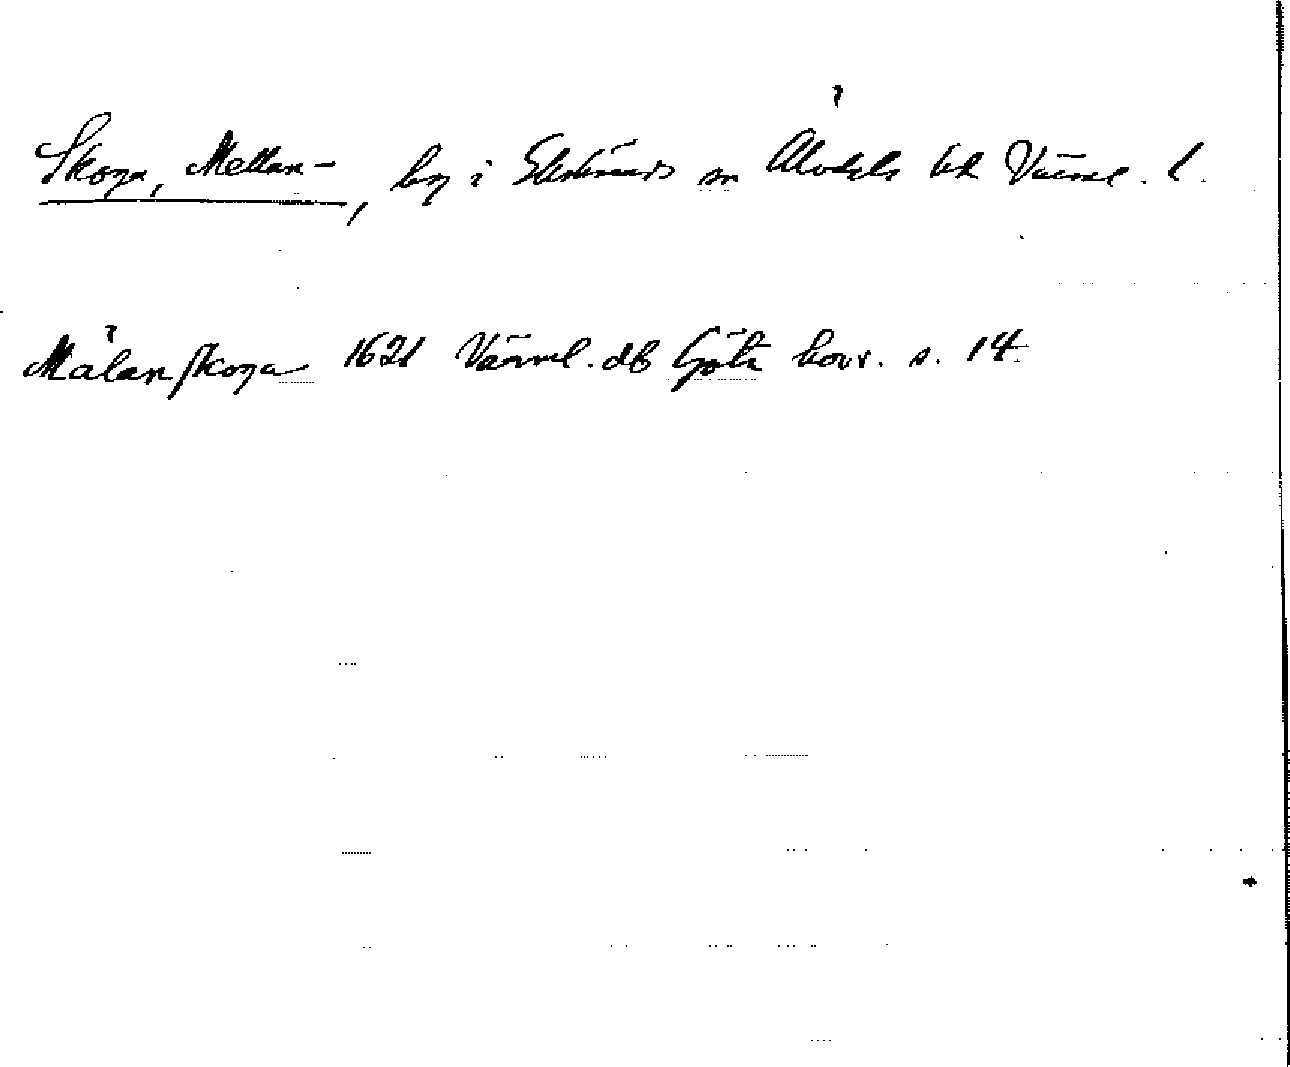 Skoga, Mellan-, by i Ekshärads sn Älvdals hd Värml. l.
Målanskoga 1621 Värml. db Göta hovr. s. 14